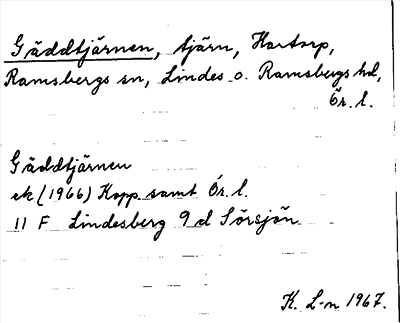 Gäddtjärnen, tjärn, Hartorp,
Ramsbergs sn, Lindes o. Ramsbergs hd,
Ör. l.
Gäddtjärnen
ek (1966) Kopp samt Ör. l.
11 F Lindesberg 9 d Sörsjön
K. L-n 1967.